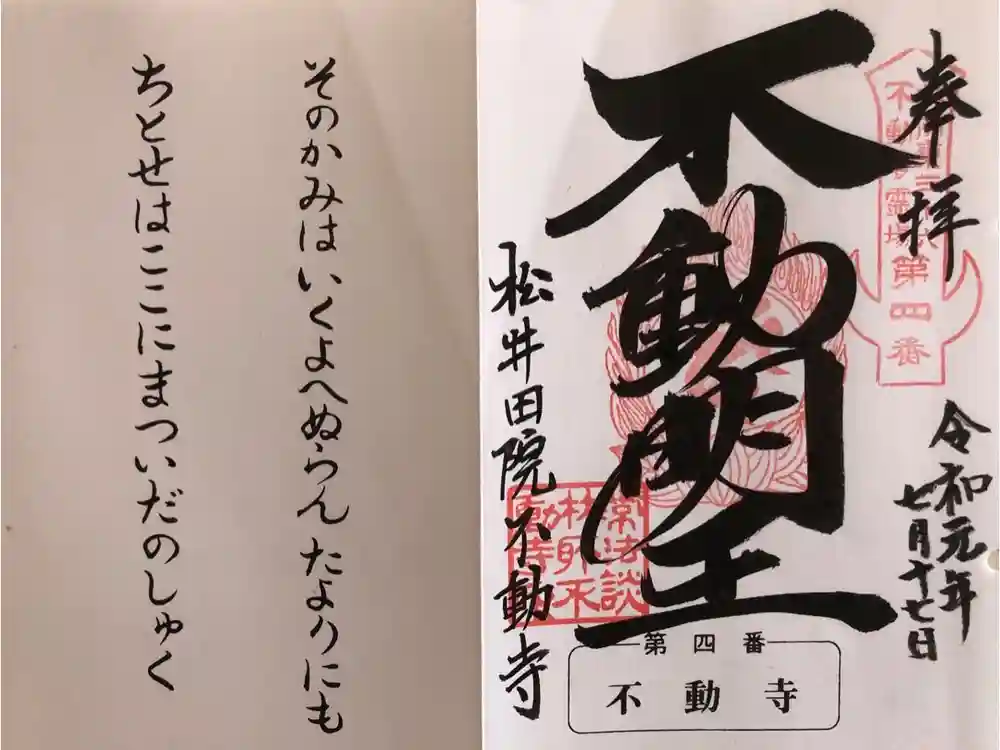 奉拝
不動明王
令和元年
七月十七日
松井田院不動寺
第四番
常法談
林所不
動寺
第四番
不動寺
そのかみはいくよへぬらんたよりにも
ちとせはここにまついだのしゅく